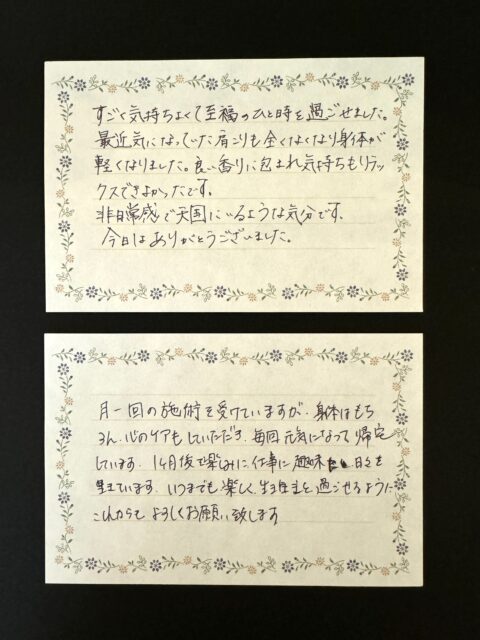 すごく気持ちよくて至福のひと時を過ごせました。
最近気になっていた肩こりも全くなくなり身体が
軽くなりました。良い香りに包まれ気持ちもリラッ
クスできよかったです。
非日常感で天国にいるような気分です。
今日はありがとうございました。
月一回の施術を受けていますが、身体はもち
ろん、心のケアもしていただき、毎回元気になって帰宅
しています。1ヶ月後を楽しみに、仕事に趣味に日々を
過ごしています。いつまでも楽しく生活を過ごせるように
これからもよろしくお願い致します